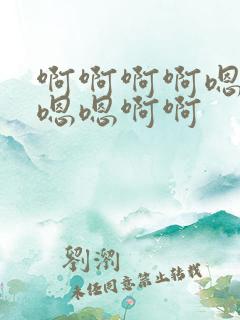 啊啊啊啊嗯
嗯嗯啊啊
劉瀏
未经同意禁止转载